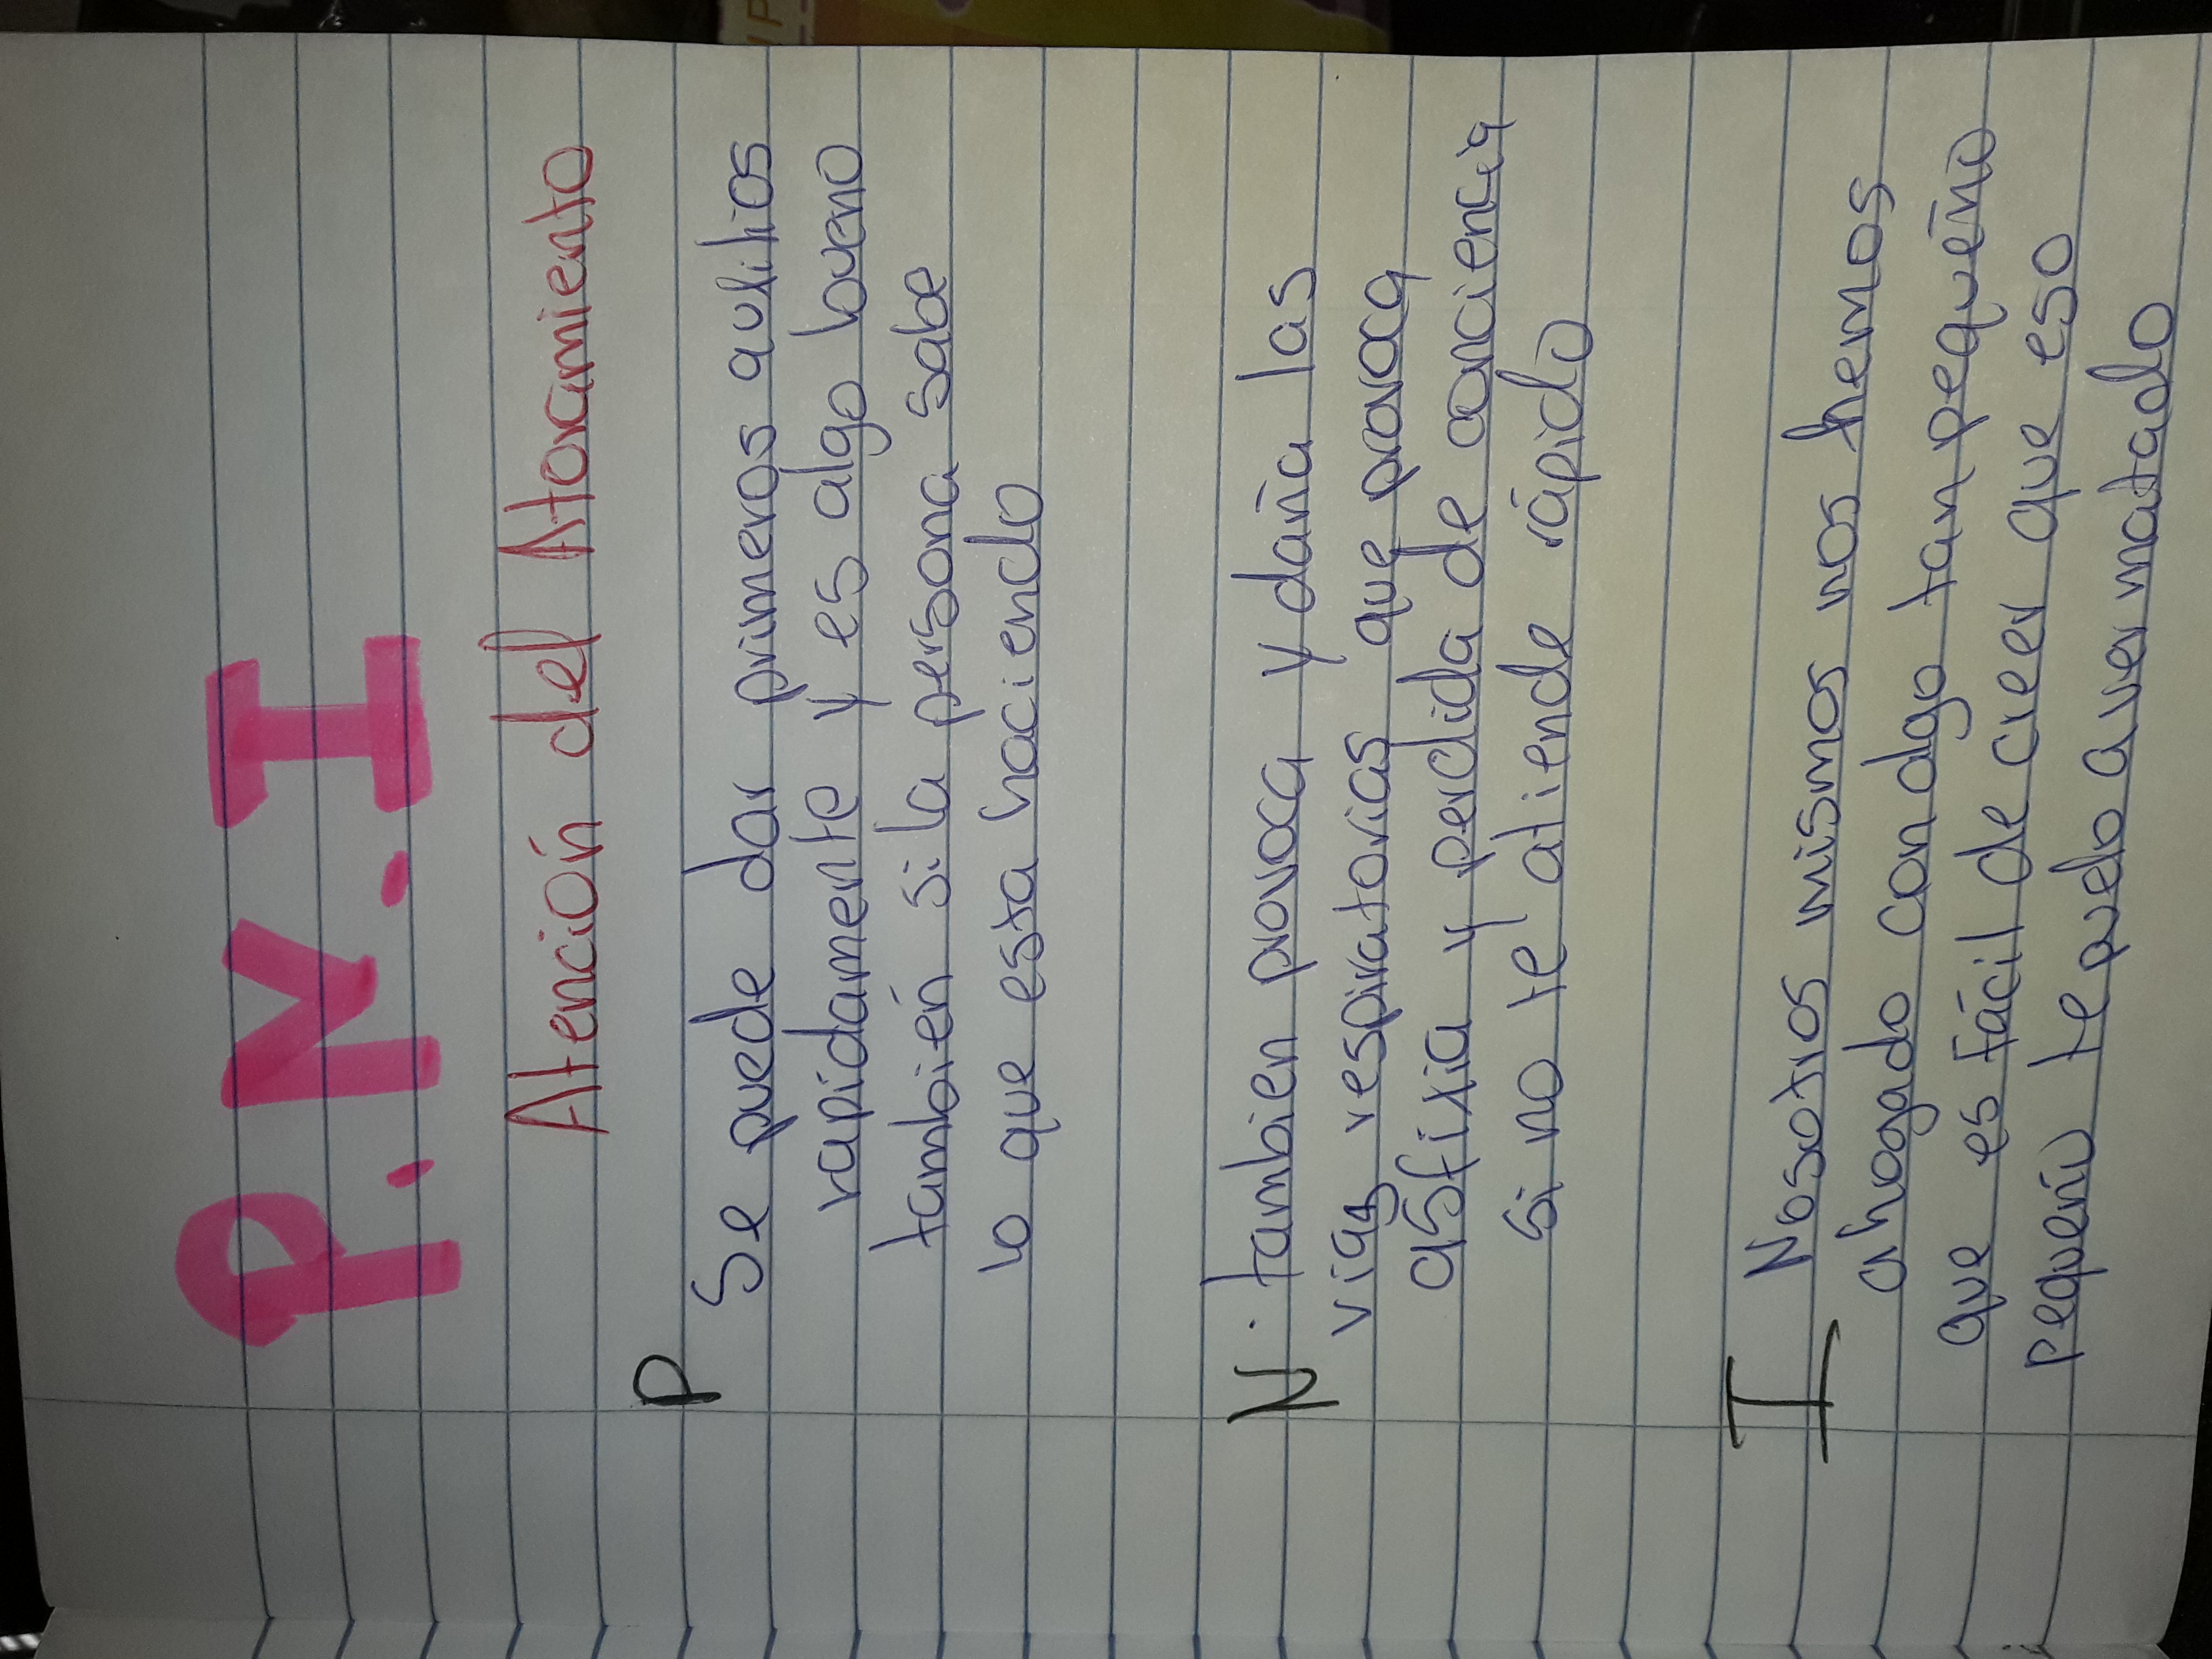 P.N.I
Atención del Atoramiento
P Se puede dar primeros aulilios
rapidamente y es algo bueno
también si la persona sabe
lo que esta haciendo
N · tambien provoca y daña las
vias respiratorias que provoca
asfixia y perdida de conciencia
si no te atiende rápido
I Nosotros mismos nos hemos
ahogado con algo tan pequeño
que es fácil de creer que eso
pequeño te pudo a ver matado